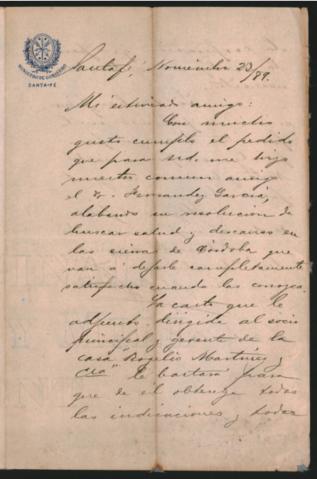 MINISTERIO DE GOBIERNO
SANTA-FÉ
Santa fé, Noviembre 23/89.
Mi estimado amigo:
Con mucho
gusto cumplo el pedido
que para Ud. me hizo
nuestro comun amigo
el Dr. Fernandez García,
alabando su resolucion de
buscar salud y descanso en
las sierras de Córdoba que
van á dejarle completamente
satisfecho cuando las conozca.
La carta que le
adjunto, dirigida al socio
principal y gerente de la
casa "Rogelio Martinez y
Cia" le bastará para
que de el obtenga todas
las indicaciones y todas